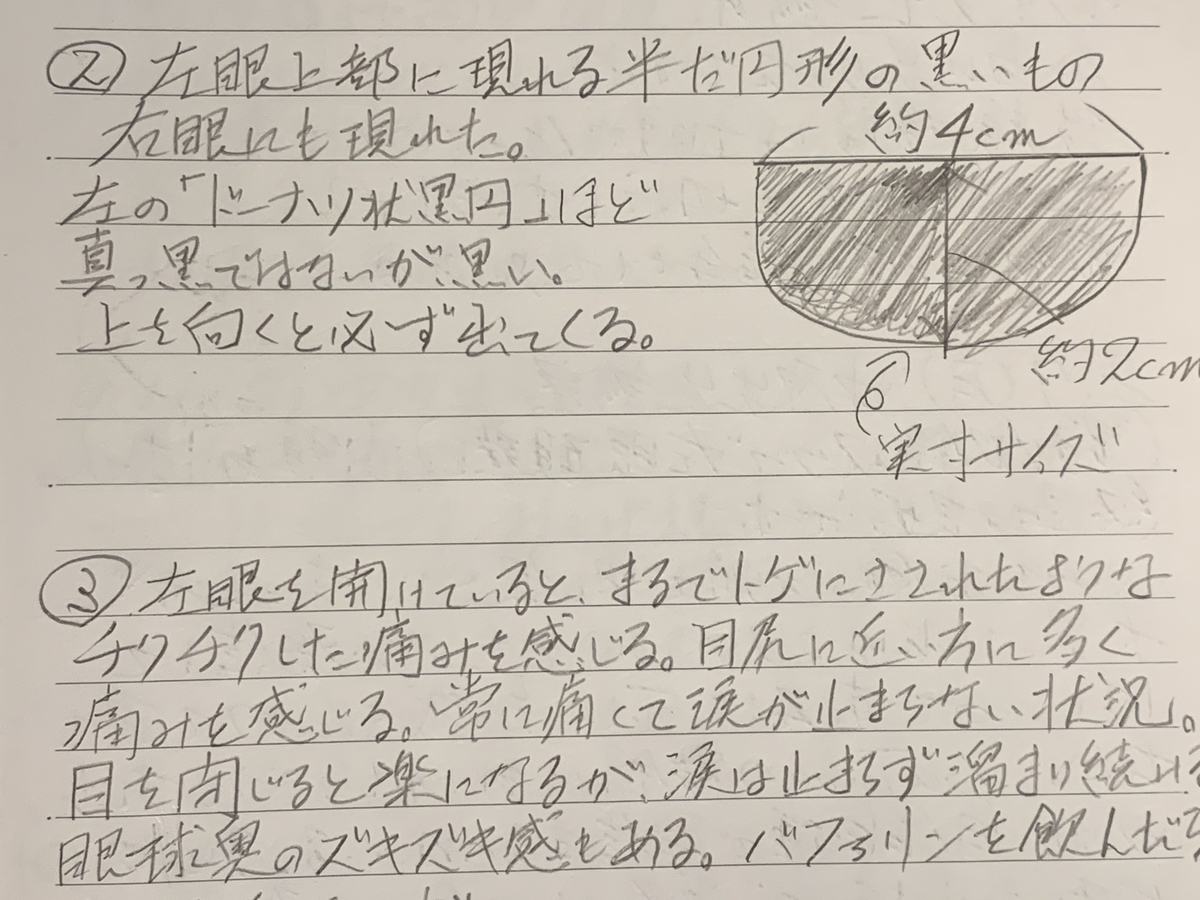 ② 左眼上部に現れる半だ円形の黒いもの
右眼にも現れた。
約4cm
左の「ドーナツ状黒円」ほど
真っ黒ではないが、黒い。
上を向くと必ず出てくる。
約2cm
実寸サイズ
③ 左眼を開けていると、まるでトゲにさされたような
チクチクした痛みを感じる。目尻に近い方に多く
痛みを感じる。常に痛くて涙が止まらない状況。
目を閉じると楽になるが、涙は止まらず溜まり続ける
眼球奥のズキズキ感もある。バファリンを飲んだ